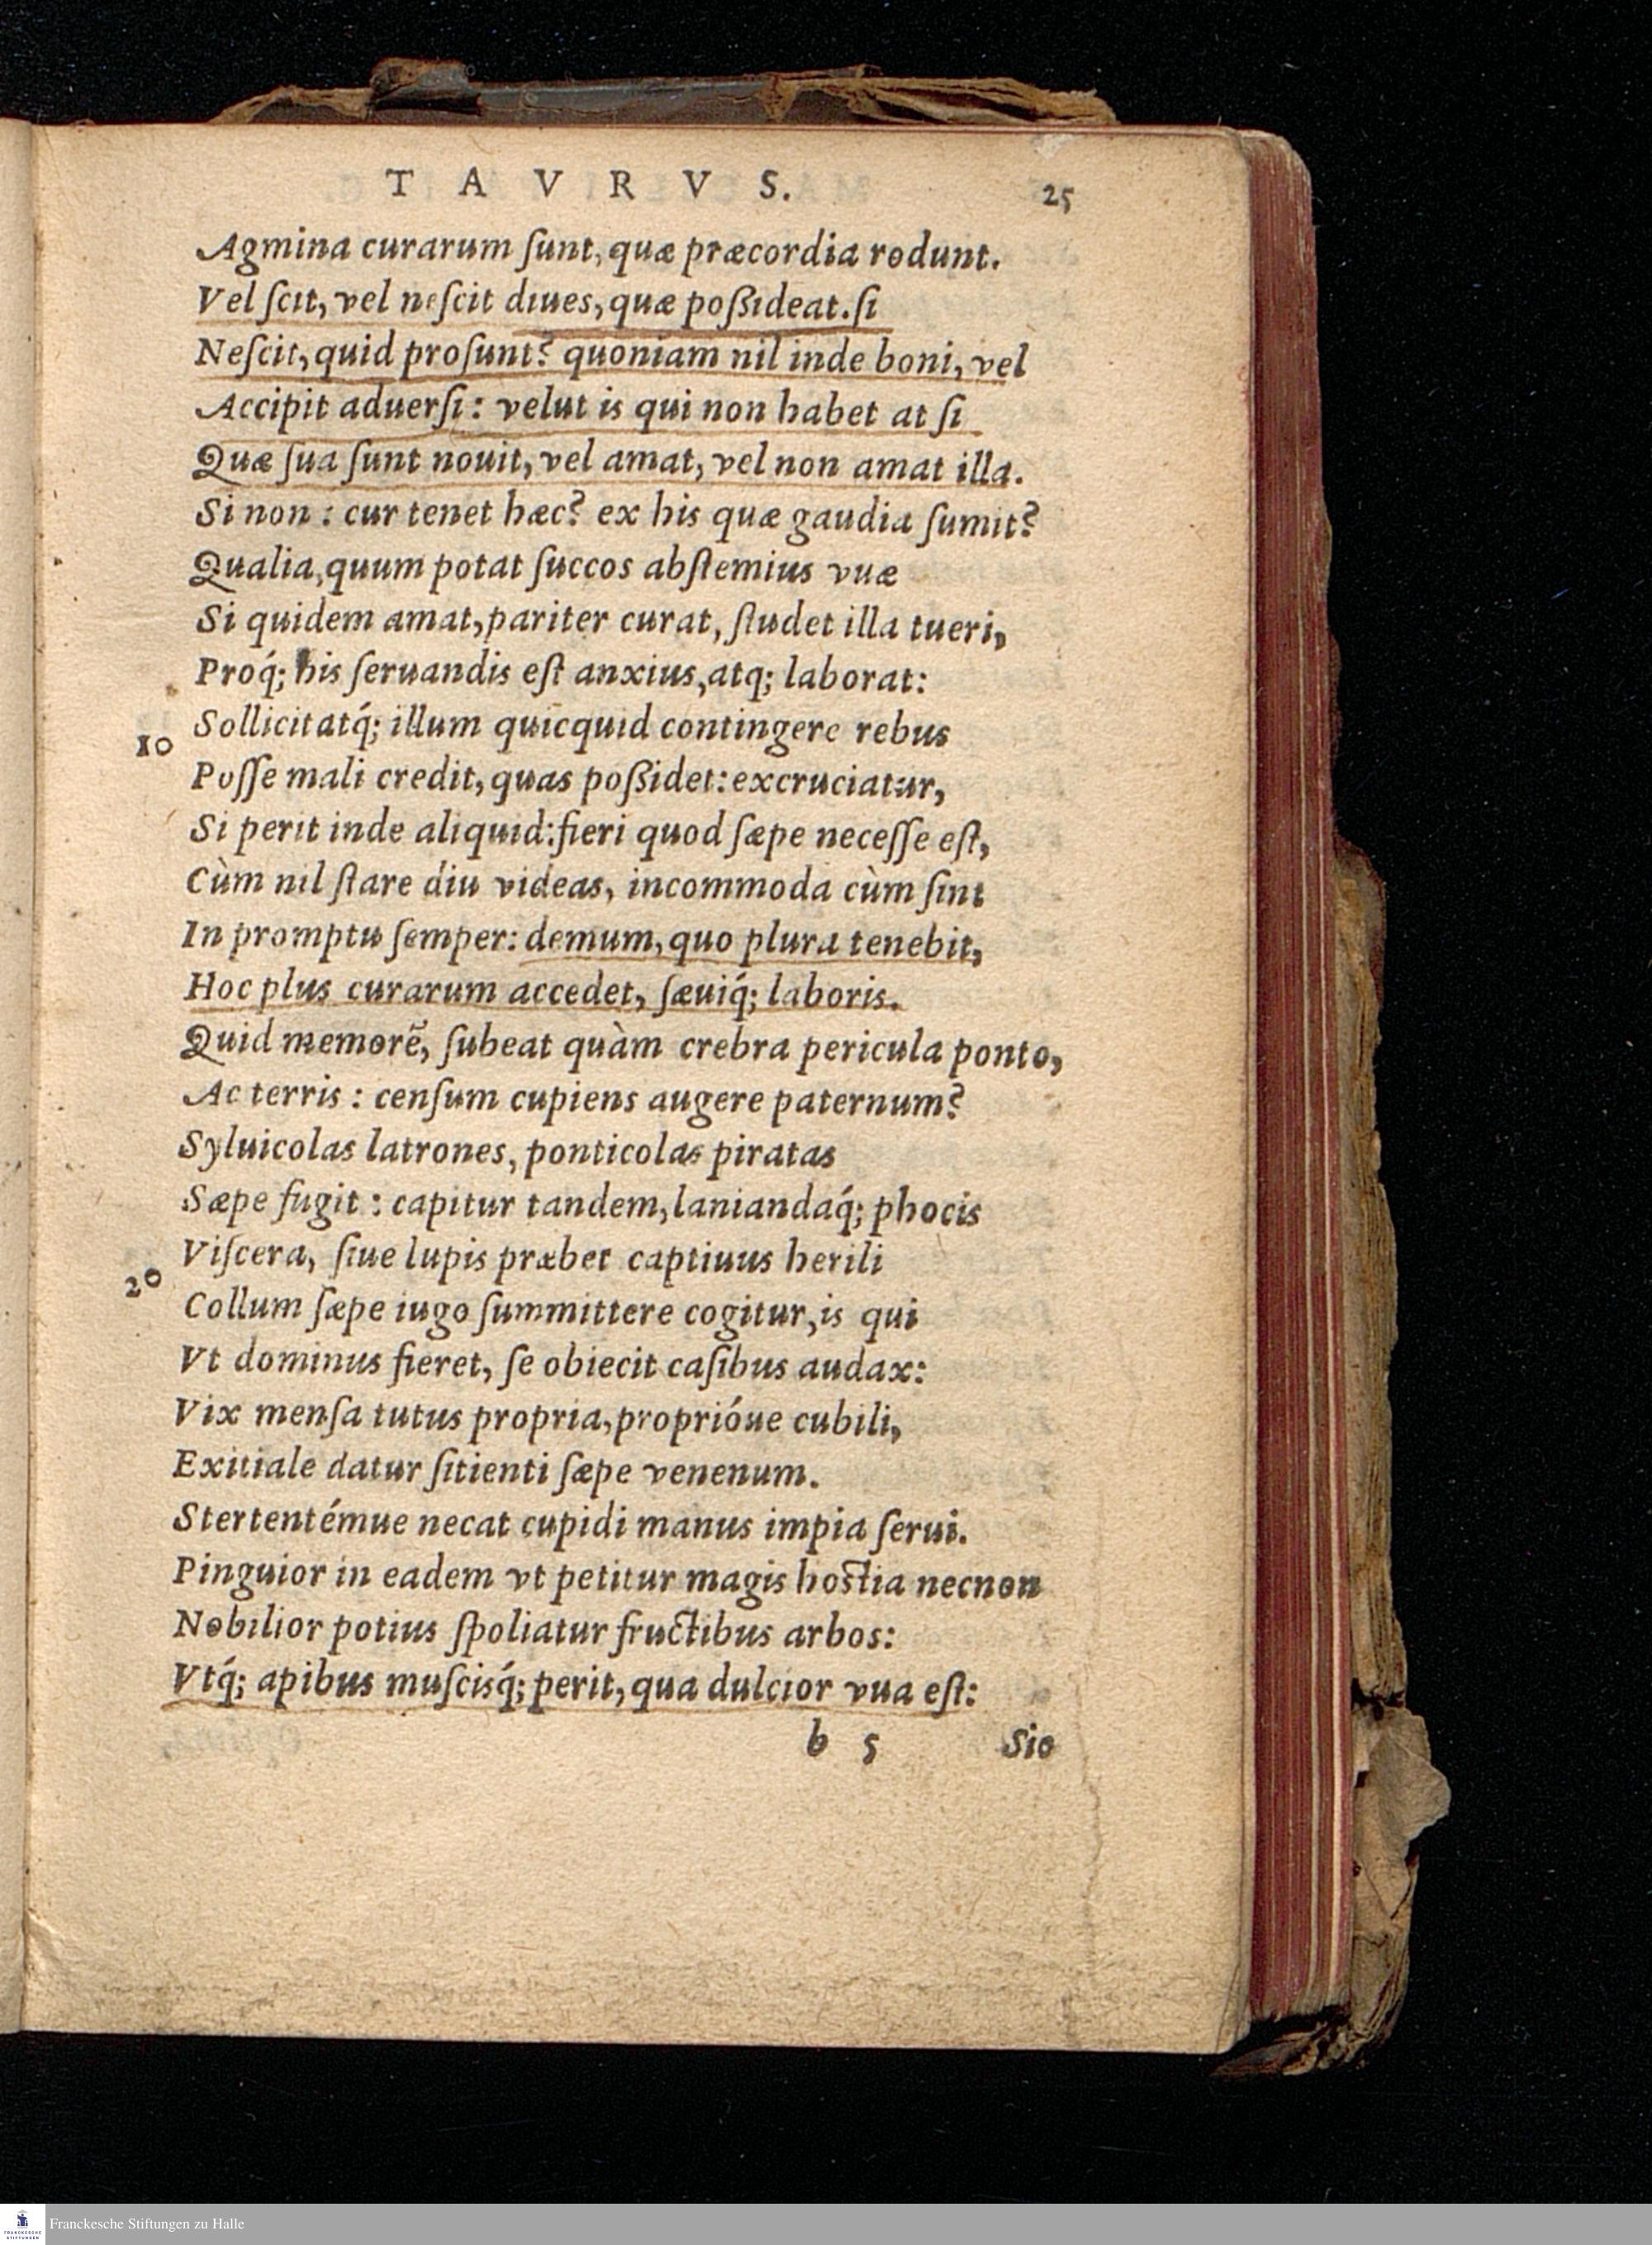 T A V R V S. 25
Agmina curarum ſunt, quæ præcordia rodunt.
Vel ſcit, vel neſcit diues, quæ poßideat. ſi
Neſcit, quid proſunt? quoniam nil inde boni, vel
Accipit aduerſi: velut is qui non habet at ſi
Quæ ſua ſunt nouit, vel amat, vel non amat illa.
Si non: cur tenet hæc? ex his quæ gaudia ſumit?
Qualia, quum potat ſuccos abſtemius vuæ
Si quidem amat, pariter curat, ſtudet illa tueri,
Proq́; his ſeruandis eſt anxius, atq; laborat:
10 Sollicitatq́; illum quicquid contingere rebus
Poſſe mali credit, quas poßidet: excruciatur,
Si perit inde aliquid: fieri quod ſæpe neceſſe eſt,
Cùm nil ſtare diu videas, incommoda cùm ſint
In promptu ſemper: demum, quo plura tenebit,
Hoc plus curarum accedet, ſæuiq́; laboris.
Quid memorē, ſubeat quàm crebra pericula ponto,
Ac terris: cenſum cupiens augere paternum?
Syluicolas latrones, ponticolas piratas
Sæpe fugit: capitur tandem, laniandaq́; phocis
20 Viſcera, ſiue lupis præbet captiuus herili
Collum ſæpe iugo ſummittere cogitur, is qui
Vt dominus fieret, ſe obiecit caſibus audax:
Vix menſa tutus propria, proprióue cubili,
Exitiale datur ſitienti ſæpe venenum.
Stertentémue necat cupidi manus impia ſerui.
Pinguior in eadem vt petitur magis hoſtia necnon
Nobilior potius ſpoliatur fructibus arbos:
Vtq́; apibus muſcisq́; perit, qua dulcior vua eſt:
b 5 Sic
Franckesche Stiftungen zu Halle